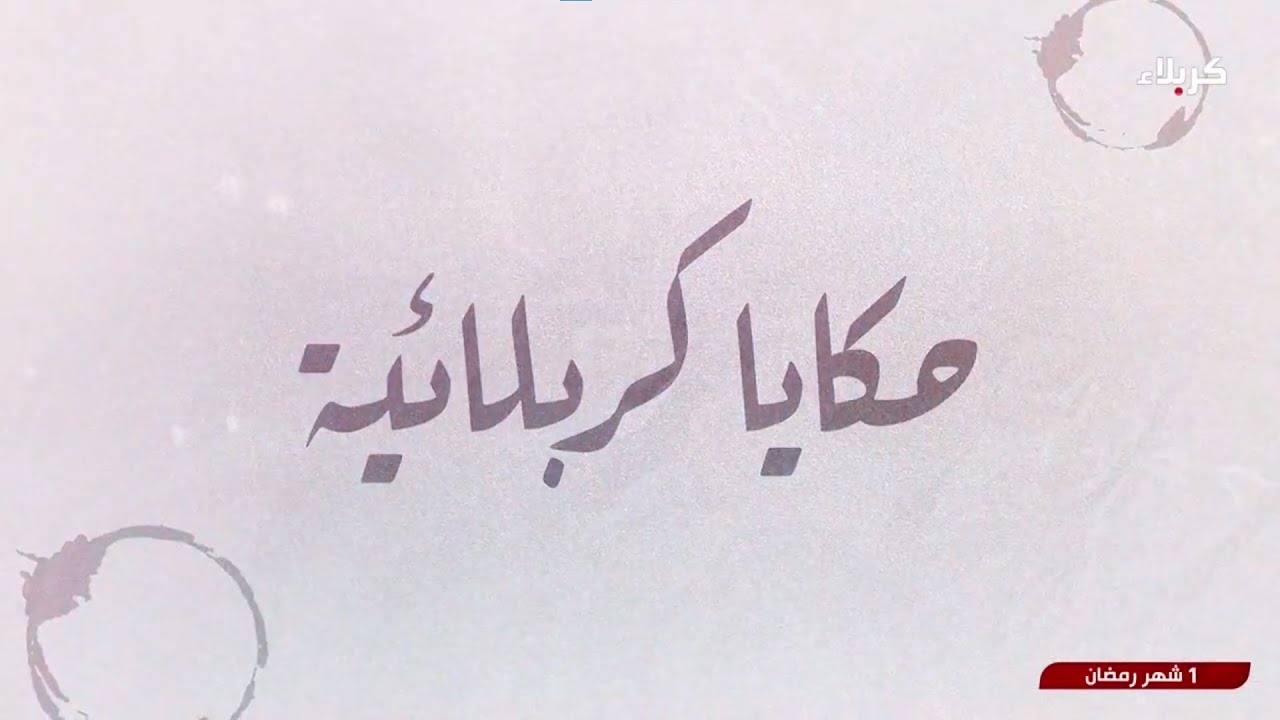 كربلاء
حكايا كربلائية
1 شهر رمضان